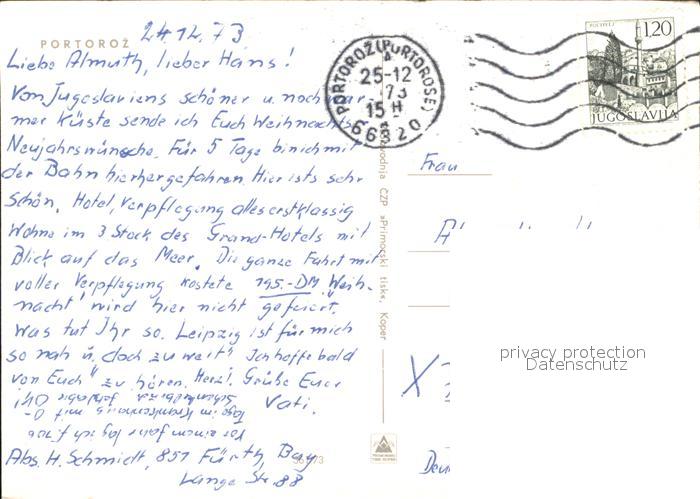 24.12.73
PORTOROŽ
Liebe Almuth, lieber Hans!
Von Jugoslaviens schöner u. noch war-
mer Küste sende ich Euch Weihnachts-
Neujahrswünsche. Für 5 Tage bin ich mit
der Bahn hierhergefahren. Hier ists sehr
schön. Hotel, Verpflegung alles erstklassig
Wohne im 3 Stock des Grand-Hotels mit
Blick auf das Meer. Die ganze Fahrt mit
voller Verpflegung kostete 195.-DM. Weih-
nacht wird hier nicht gefeiert.
Was tut Ihr so. Leipzig ist für mich
so nah u. doch zu weit" Ich hoffe bald
von Euch zu hören. Herzl. Grüße Euer
Vati.
Vor einem Jahr lag ich 7
Tage im Krankenhaus mit
Abs. H. Schmidt, 851 Fürth, Bay
Lange Str. 88
PORTOROŽ (PORTOROSE)
25-12
73
15 H
66320
POČITELJ
1,20
JUGOSLAVIJA
ČZP »Primorski tisk«, Koper
Frau
privacy protection
Datenschutz